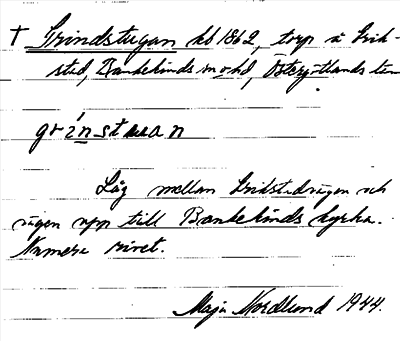 † Grindstugan kb 1862, torp å Grik-
stad, Bankekinds sn o hd, Östergötlands län
grínstuan
Låg mellan Grikstadvägen och
vägen upp till Bankekinds kyrka.
Numera rivet.
Maja Nordlund 1944.